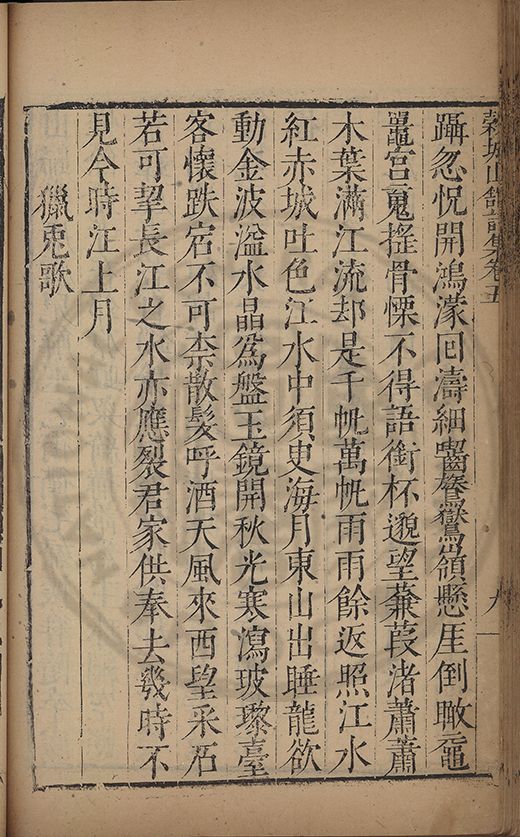 穀城山館詩集卷五
躡忽恍開鴻濛回濤細齧鴛鴦嶺懸厓倒瞰黿
鼉宮䰟搖骨慄不得語銜杯邈望蒹葭渚蕭蕭
木葉滿江流却是千帆萬帆雨雨餘返照江水
紅赤城吐色江水中須臾海月東山出睡龍欲
動金波溢水晶為盤玉鏡開秋光寒瀉玻瓈臺
客懷跌宕不可柰散髮呼酒天風來西望采石
若可挈長江之水亦應裂君家供奉去幾時不
見今時江上月
獵兎歌
九